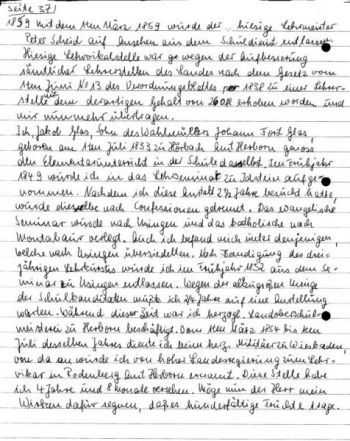 Seite 37)
1859 Mit dem 1ten März 1859 würde der hiesige Lehrmeister
Peter Scheid auf Ansehen aus dem Schuldienst entlassen.
Hiesige Lehrvikarstelle war wegen der Aufbesserung
sämtlicher Lehrerstellen des Landes nach dem Gesetz vom
1ten Juni No 13 des Verordnungsblattes pr 1858 zu einer Lehrer-
stelle dem derartigen Gehalt von erhoben worden und
mir nunmehr übertragen.
Ich, Jakob Glas, Sohn des Wahlmüllers Johann Jost Glas,
geboren am 1ten Juli 1833 zu Hörbach Amt Herborn genoss
den Elementarunterricht in der Schule daselbst. Im Frühjahr
1849 würde ich in das Lehrseminar zu Idstein aufge-
nommen. Nachdem ich diese Anstalt 2 1/2 Jahre besücht hatte,
würde dieselbe nach Confessionen getrennt. Das evangelische
Seminar würde nach Usingen und das katholische nach
Montabaür verlegt. Auch ich befand mich unter denjenigen,
welche nach Usingen übersiedelten. Nach Beendigung des drei-
jährigen Lehrkürses würde ich im Frühjahr 1852 aus dem Se-
minar zu Usingen entlassen. Wegen der allzugroßen Menge
der Schulkandidaten müßte ich 2/4 Jahre auf eine Anstellung
warten. Während dieser Zeit war ich herzogl. Landoberschül-
meisterei zu Herborn beschäftigt. Vom 1ten März 1854 bis 1ten
Juli desselben Jahres diente ich beim herz. Militär zu Wiesbaden,
von da an würde ich von hoher Landesregierung zum Lehr-
vikar in Rodenberg Amt Herborn ernannt. Diese Stelle habe
ich 4 Jahre und 8 Monate versehen. Möge nun der Herr mein
Wirken dafür segnen, daß es hundertfältige Früchte trage.